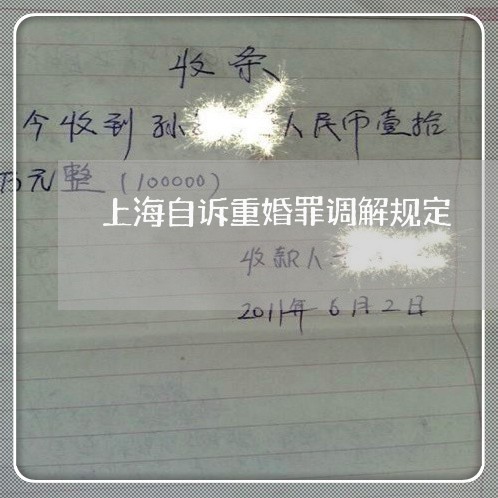 收条
今收到孙人民币壹拾
万元整（100000）
上海自诉重婚罪调解规定
收款人
2011年6月2日